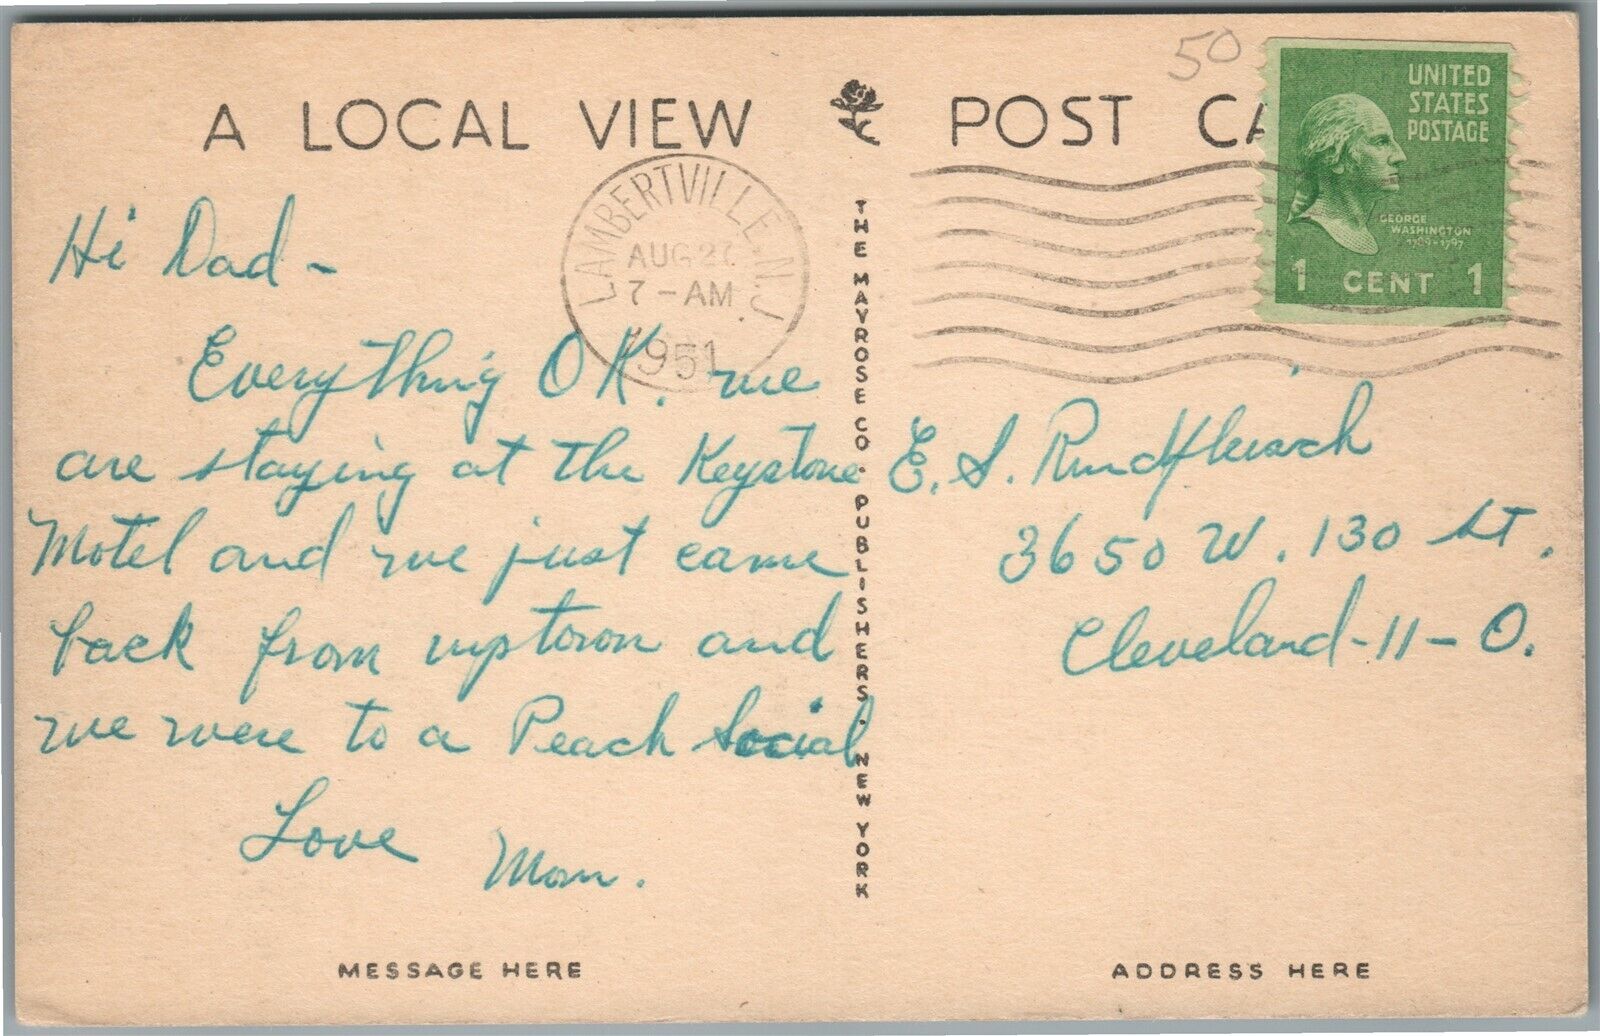 50
A LOCAL VIEW
POST CA
UNITED
STATES
POSTAGE
GEORGE
WASHINGTON
1789-1797
1 CENT 1
LAMBERTVILLE, N.J.
AUG
7-AM
1951
THE MAYROSE CO. PUBLISHERS. NEW YORK
Hi Dad -
Everything OK. we
are staying at the Keystone
Motel and we just came
back from uptown and
we were to a Peach Social
Love
Mom.
E. S. Rindfleisch
3650 W. 130 St.
Cleveland-11-O.
MESSAGE HERE
ADDRESS HERE